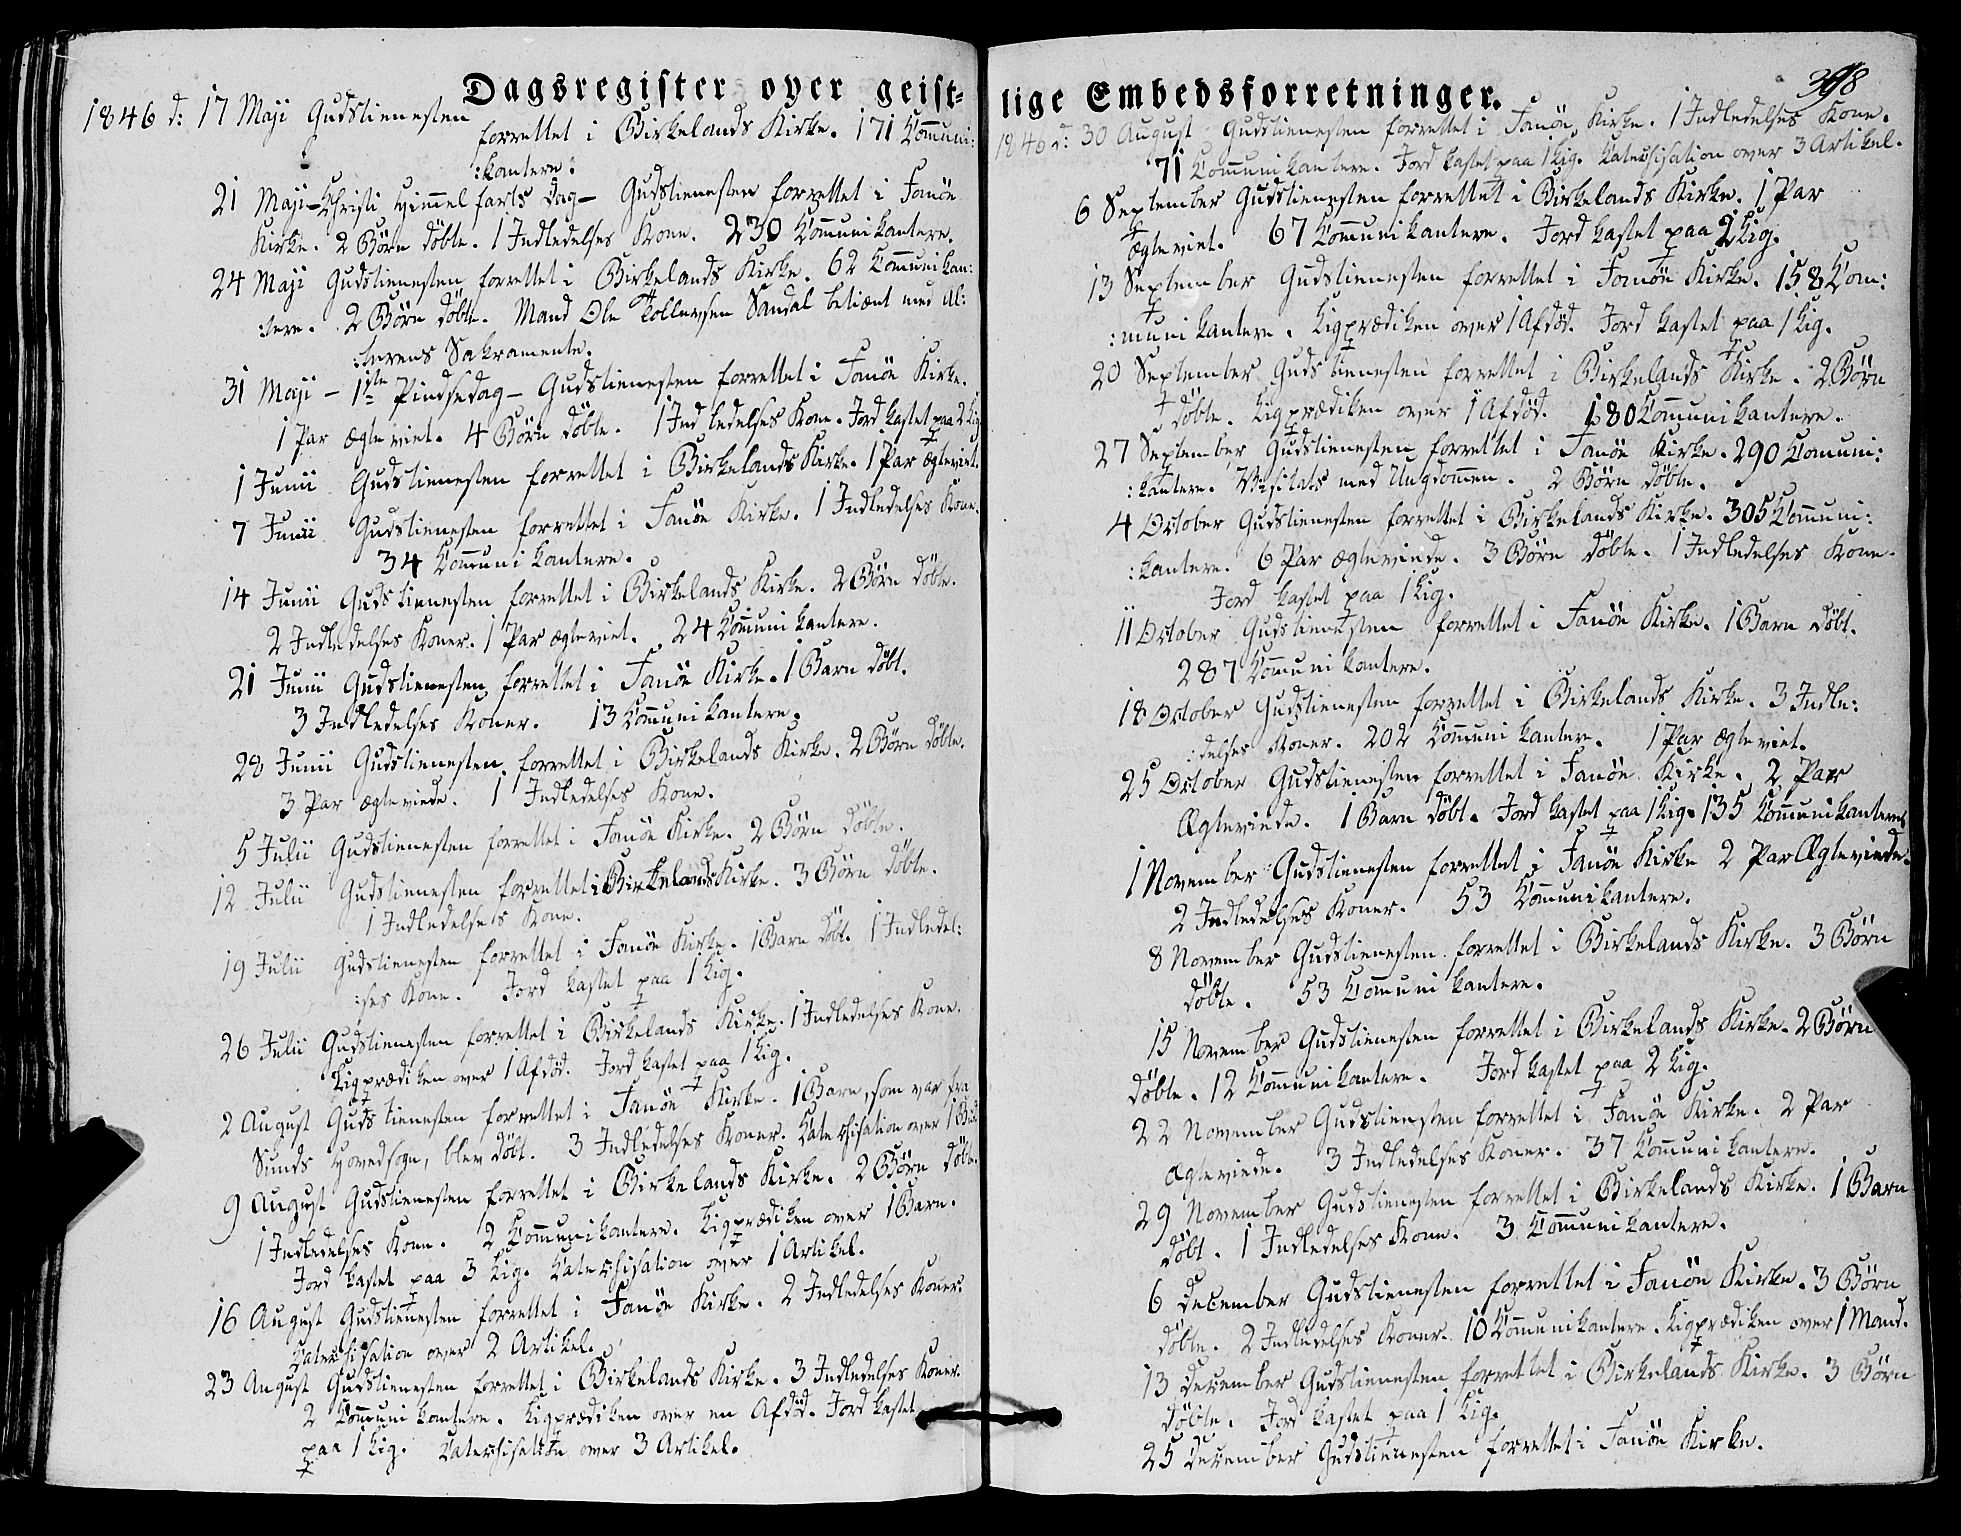 Dagsregister over geist=
1846 d: 17 Maji Gudstienesten
forrettet i Birkelands Kirke. 171 Communi:
:kantere.
21 Maji - Christi Himmelfarts Dag - Gudstienesten forrettet i Fanøe
Kirke. 2 Børn døbte. 1 Indledelses Kone. 230 Communikantere.
24 Maji Gudstienesten forrettet i Birkelands Kirke. 62 Communikan:
:tere. 2 Børn døbte. Mand Ole Tollevsen Sandal betient med Al:
:terens Sakramente.
31 Maji - 1ste Pindsedag - Gudstienesten forrettet i Fanøe Kirke.
1 Par ægteviet. 4 Børn døbte. 1 Indledelses Kone. Jord kastet paa 2 Lig.
1 Junii Gudstienesten forrettet i Birkelands Kirke. 1 Par ægteviet.
7 Junii Gudstienesten forrettet i Fanöe Kirke. 1 Indledelses Kone.
34 Communikantere.
14 Junii Gudstienesten forrettet i Birkelands Kirke. 2 Børn døbte.
2 Indledelses Koner. 1 Par ægteviet. 24 Communikantere.
21 Junii Gudstienesten forrettet i Fanöe Kirke. 1 Barn døbt.
3 Indledelses Koner. 13 Communikantere.
28 Junii Gudstienesten forrettet i Birkelands Kirke. 2 Børn døbte.
3 Par ægteviede. 1 Indledelses Kone.
5 Julii Gudstienesten forrettet i Fanöe Kirke. 2 Børn døbte.
12 Julii Gudstienesten forrettet i Birkelands Kirke. 3 Børn døbte.
1 Indledelses Kone.
19 Julii Gudstienesten forrettet i Fanöe Kirke. 1 Barn døbt. 1 Indledel:
:ses Kone. Jord kastet paa 1 Lig.
26 Julii Gudstienesten forrettet i Birkelands Kirke. 1 Indledelses Kone.
Ligprædiken over 1 Afdød. Jord kastet paa 1 Lig.
2 August Gudstienesten forrettet i Fanöe Kirke. 1 Barn, som var fra
Sunds Hovedsogn, blev døbt. 3 Indledelses Koner. Catechisation over 1
9 August Gudstienesten forrettet i Birkelands Kirke. 2 Børn døbte.
1 Indledelses Kone. 2 Communikantere. Ligprædiken over 1 Barn.
Jord kastet paa 3 Lig. Catechisation over 1 Artikel.
16 August Gudstienesten forrettet i Fanöe Kirke. 2 Indledelses Koner.
Catechisation over 2 Artikel.
23 August Gudstienesten forrettet i Birkelands Kirke. 3 Indledelses Koner.
2 Communikantere. Ligprædiken over en Afdød. Jord kastet
paa 1 Lig. Catechisation over 3 Artikel.
lige Embedsforretninger.
398
1846 d: 30 August Gudstienesten forrettet i Fanöe Kirke. 1 Indledelses Kone.
71 Communikantere. Jord kastet paa 1 Lig. Catechisation over 3 Artikel.
6 September Gudstienesten forrettet i Birkelands Kirke. 1 Par
ægteviet. 67 Communikantere. Jord kastet paa 2 Lig.
13 September Gudstienesten forrettet i Fanöe Kirke. 158 Com:
:munikantere. Ligprædiken over 1 Afdød. Jord kastet paa 1 Lig.
20 September Gudstienesten forrettet i Birkelands Kirke. 2 Börn
döbte. Ligprædiken over 1 Afdød. 180 Communikantere.
27 September Gudstienesten forrettet i Fanöe Kirke. 290 Communi:
:kantere. Visitats med Ungdommen. 2 Børn døbte.
4 October Gudstienesten forrettet i Birkelands Kirke. 305 Communi:
:kantere. 6 Par ægteviede. 3 Børn døbte. 1 Indledelses Kone.
Jord kastet paa 1 Lig.
11 October Gudstienesten forrettet i Fanöe Kirke. 1 Barn døbt.
287 Communikantere.
18 October Gudstienesten forrettet i Birkelands Kirke. 3 Indle:
:delses Koner. 202 Communikantere. 1 Par ægteviet.
25 October Gudstienesten forrettet i Fanöe Kirke. 2 Par
Ægteviede. 1 Barn døbt. Jord kastet paa 1 Lig. 135 Communikantere.
1 November Gudstienesten forrettet i Fanöe Kirke 2 Par Ægteviede.
2 Indledelses Koner. 53 Communikantere.
8 November Gudstienesten forrettet i Birkelands Kirke. 3 Børn
døbte. 53 Communikantere.
15 November Gudstienesten forrettet i Birkelands Kirke. 2 Børn
døbte. 12 Communikantere. Jord kastet paa 2 Lig.
22 November Gudstienesten forrettet i Fanöe Kirke. 2 Par
ægteviede. 3 Indledelses Koner. 37 Communikantere.
29 November Gudstienesten forrettet i Birkelands Kirke. 1 Barn
døbt. 1 Indledelses Kone. 3 Communikantere.
6 December Gudstienesten forrettet i Fanöe Kirke. 3 Børn
døbte. 2 Indledelses Koner. 10 Communikantere. Ligprædiken over 1 Mand.
13 December Gudstienesten forrettet i Birkelands Kirke. 3 Børn
døbte. Jord kastet paa 1 Lig.
25 December Gudstienesten forrettet i Fanöe Kirke.